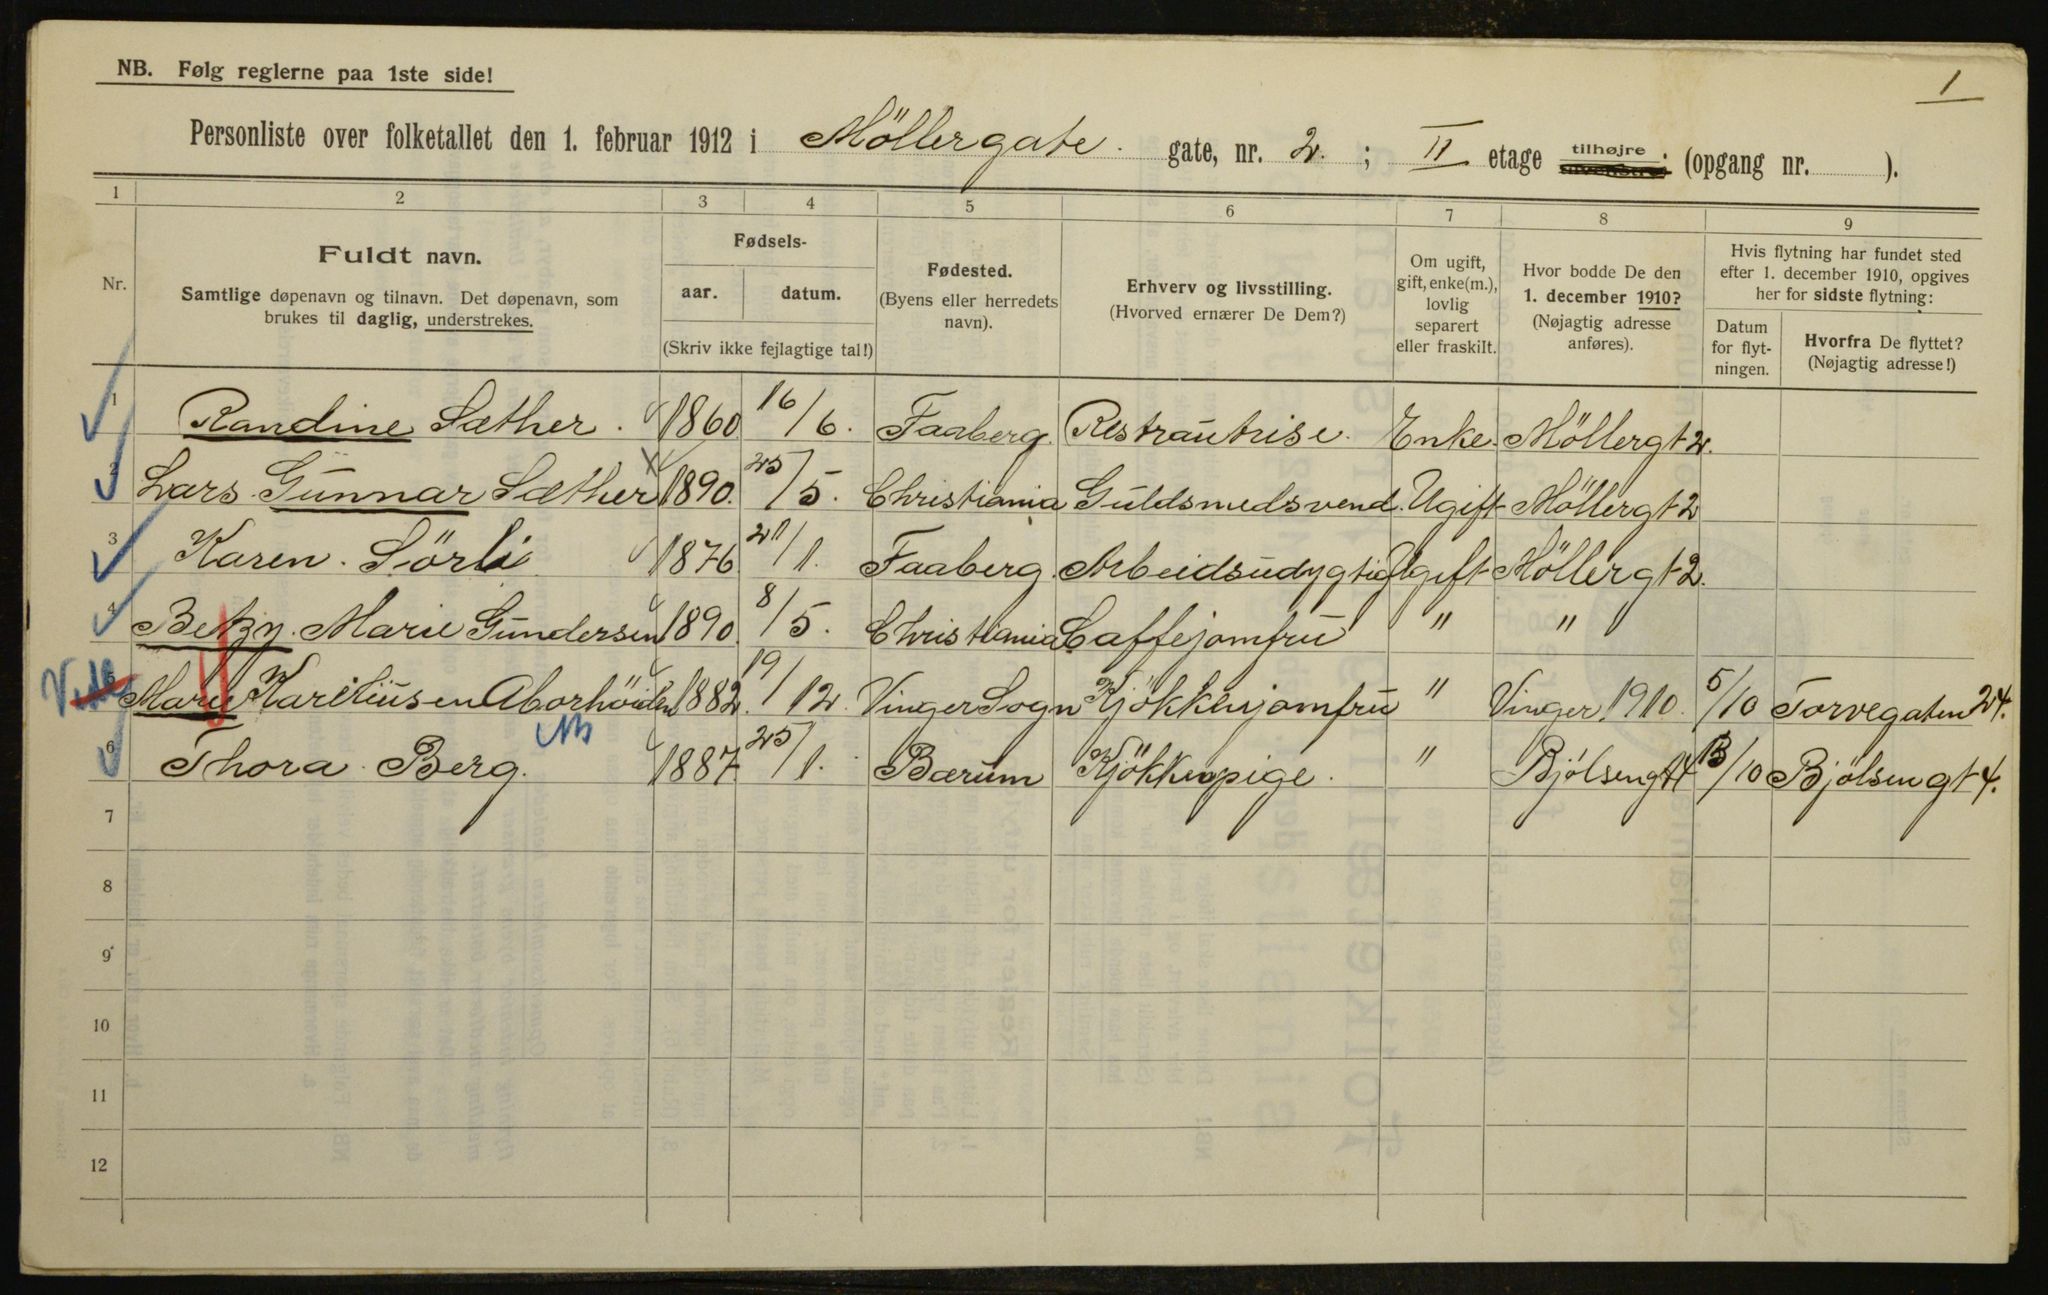 NB. Følg reglerne paa 1ste side!
1
Personliste over folketallet den 1. februar 1912 i Möllergate. gate, nr. 2. ; II etage tilhøjre (opgang nr. ).
1 2 3 4 5 6 7 8 9
Nr.
Fuldt navn.
Samtlige døpenavn og tilnavn. Det døpenavn, som
brukes til daglig, understrekes.
Fødsels-
aar. datum.
(Skriv ikke fejlagtige tal!)
Fødested.
(Byens eller herredets
navn).
Erhverv og livsstilling.
(Hvorved ernærer De Dem?)
Om ugift,
gift, enke(m.),
lovlig
separert
eller fraskilt.
Hvor bodde De den
1. december 1910?
(Nøjagtig adresse
anføres).
Hvis flytning har fundet sted
efter 1. december 1910, opgives
her for sidste flytning:
Datum
for flyt-
ningen.
Hvorfra De flyttet?
(Nøjagtig adresse!)
1 Randine Sæther. 1860 16/6. Faaberg. Restrautrise. Enke. Möllergt 2.
2 Lars Gunnar Sæther 1890. 25/5. Christiania Guldsmedsvend. Ugift Möllergt 2
3 Karen. Sörli 1876. 21/1. Faaberg. Arbeidsudygtig Ugift Möllergt 2.
4 Betzy. Marie Gundersen 1890. 8/5. Christiania Caffejomfru " "
5 Marie Karelíusen 1882. 19/12. Vinger Sogn Kjökkenjomfru " Vinger 1910. 5/10 Torvegaten 24.
6 Thora Berg. 1887 25/1. Bærum Kjökkenpige. " Bjölsengt 4 13/10 Bjölsengt 4.
7
8
9
10
11
12